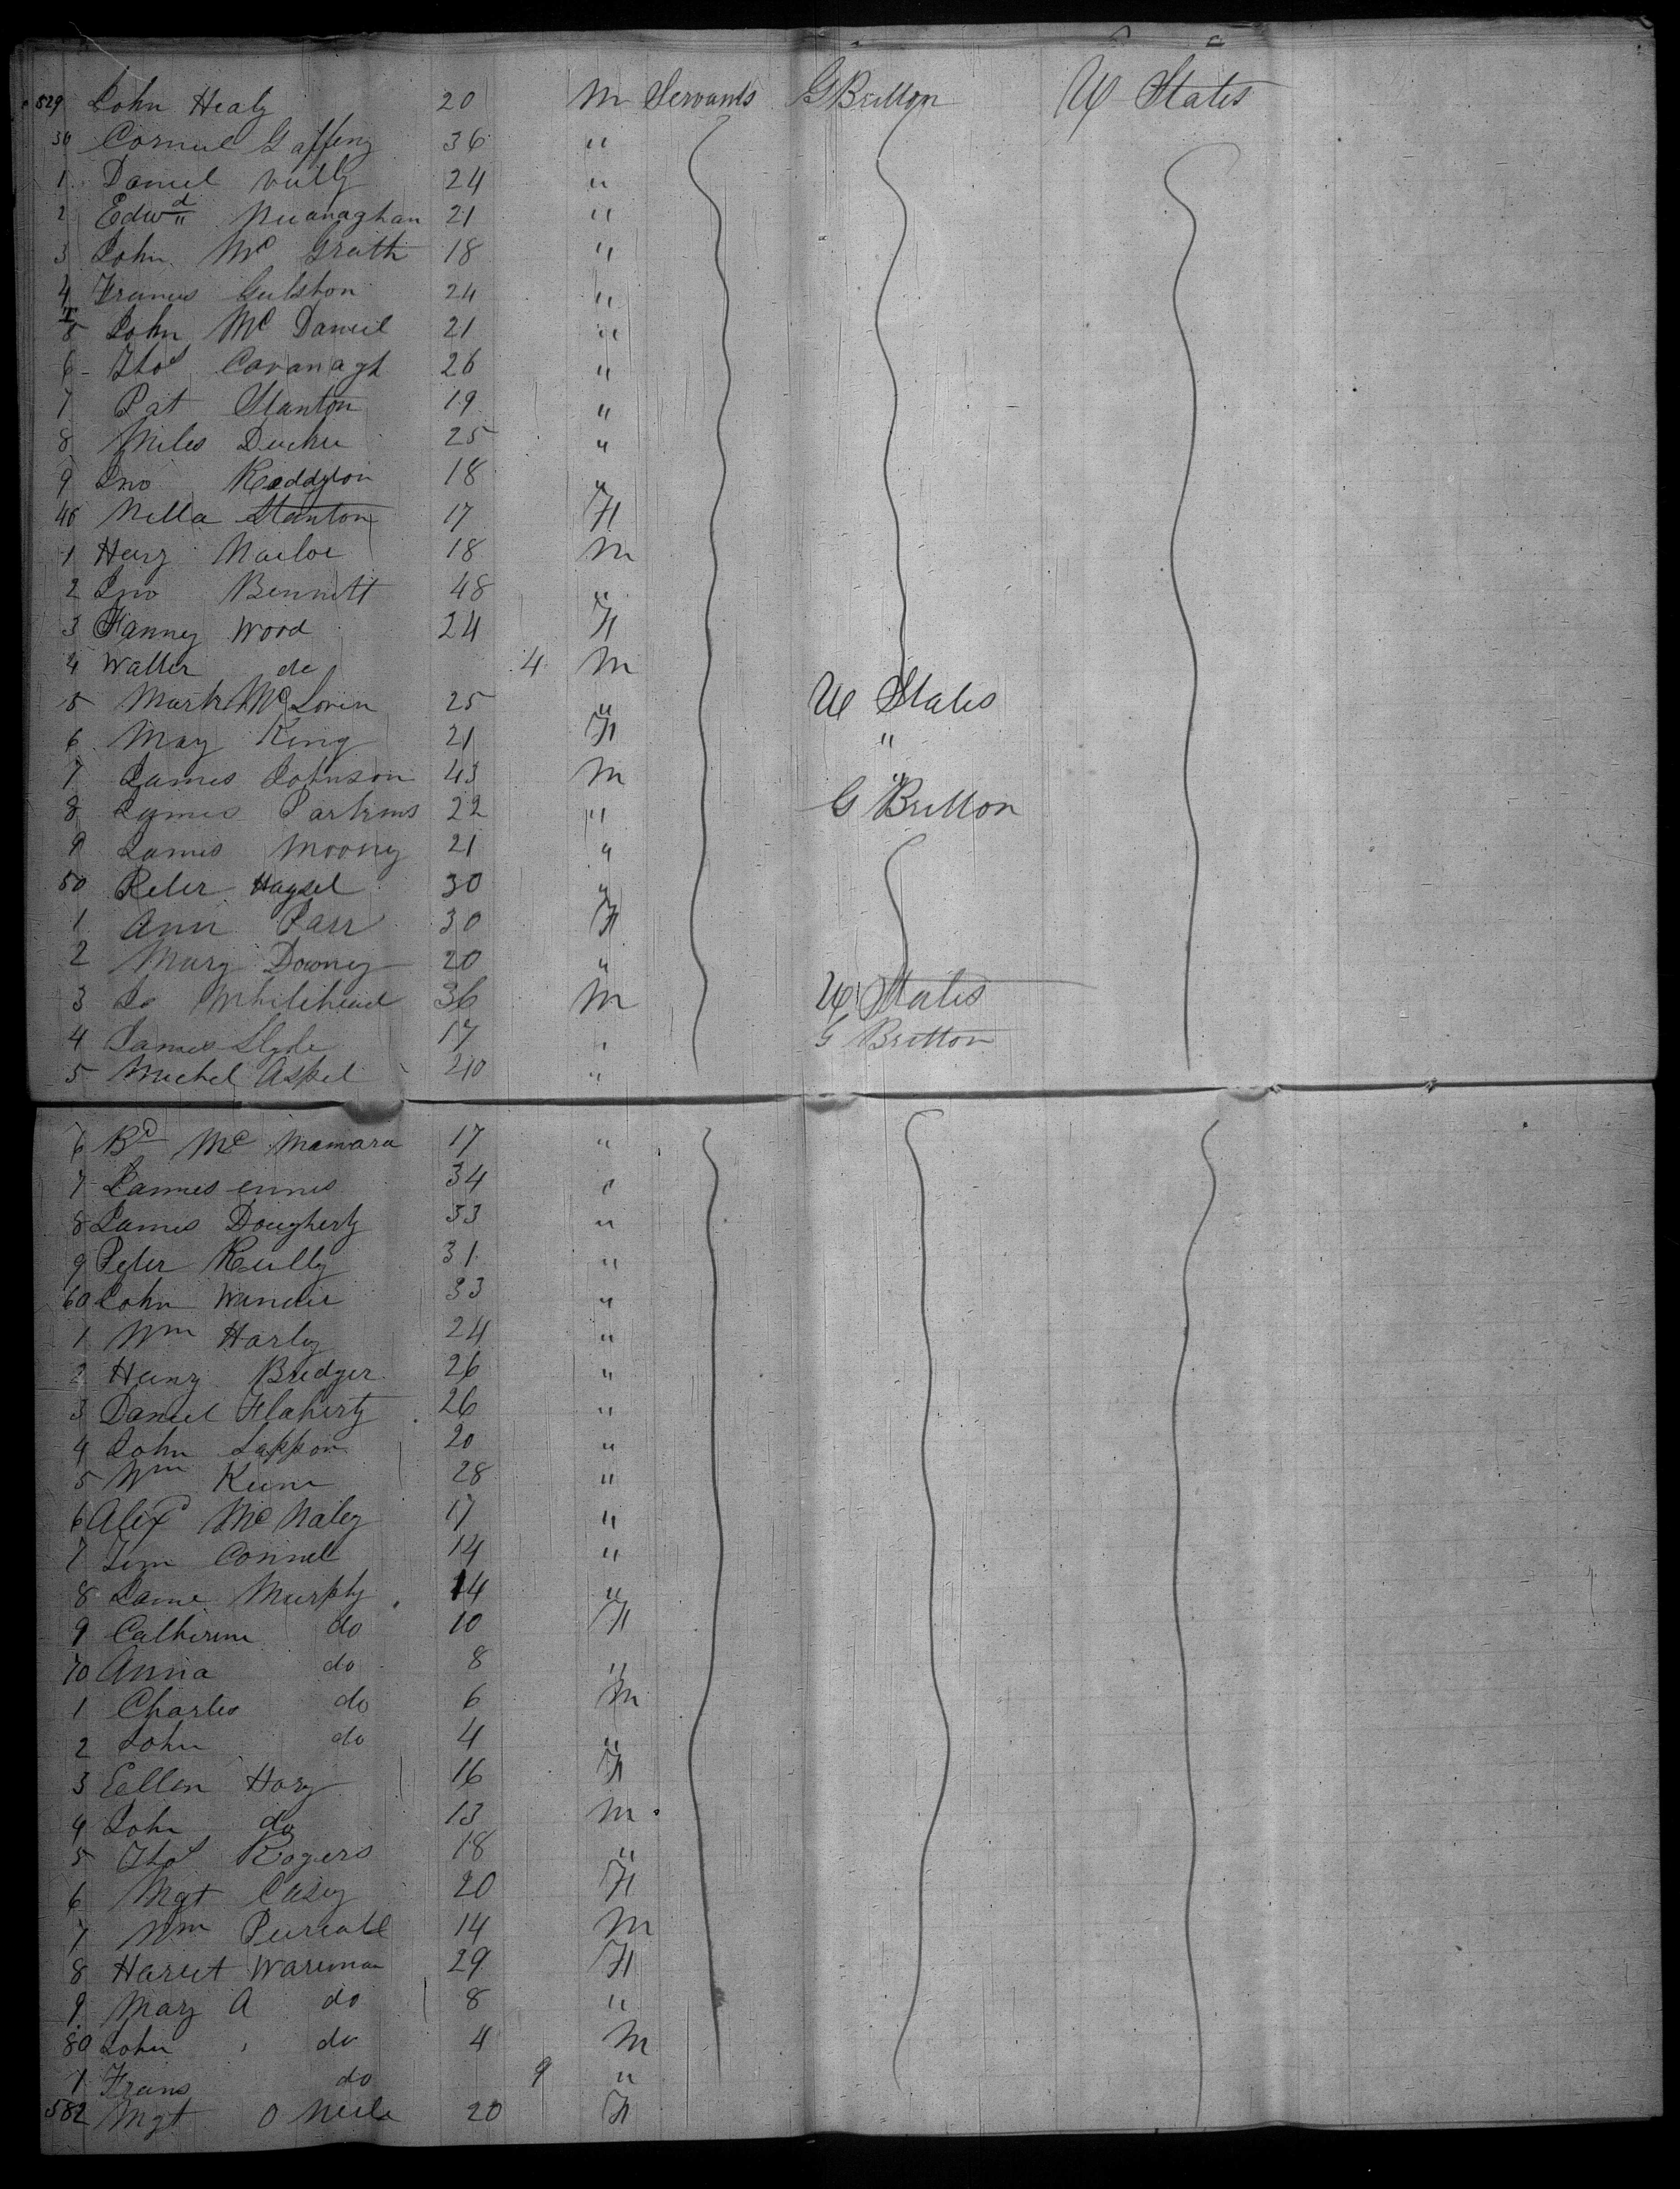 529 John Healy 20 M Servants G Britton U States
30 Cornul Gaffeny 36 "
1 Daniel 24 "
2 Edwd 21 "
3 John Mc Grath 18 "
4 Francis Gulston 24 "
5 John Mc Daniel 21 "
6 Thos Cavanagh 26 "
7 Pat Stanton 19 "
8 Miles 25 "
9 Jno 18 "
40 Nella Stanton 17 F
1 Heny 18 M
2 Jno Bennett 48 "
3 Fanney Wood 24 F
4 Walter do 4 M
5 Mark Mc 25 " U States
6 May King 21 F "
7 James Johnson 43 M "
8 James 22 " G Britton
9 James Moony 21 "
50 Peter 30 "
1 Ann Parr 30 F
2 Mary Downey 20 "
3 Jo Whitehead 36 M U States
4 James 17 " G Britton
5 Michel Aspel 20 "
6 Bd Mc Mamara 17 "
7 James ennis 34 "
8 James Dougherty 33 "
9 Peter Reilly 31 "
60 John 33 "
1 Wm Harly 24 "
2 Heny Bridger 26 "
3 Daniel Flaherty 26 "
4 John Lappon 20 "
5 Wm 28 "
6 Alex Mc Naley 17 "
7 Tim Connel 14 "
8 Jame Murphy 14 "
9 Catherine do 10 F
70 Anna do 8 "
1 Charles do 6 M
2 John do 4 "
3 Eellen Hory 16 F
4 John do 13 M
5 Thos Rogers 18 "
6 Mgt Casey 20 F
7 Wm 14 M
8 Hariet Wareman 29 F
9 Mary A do 8 "
80 John do 4 M
1 Frans do 9 "
582 Mgt O Neile 20 F